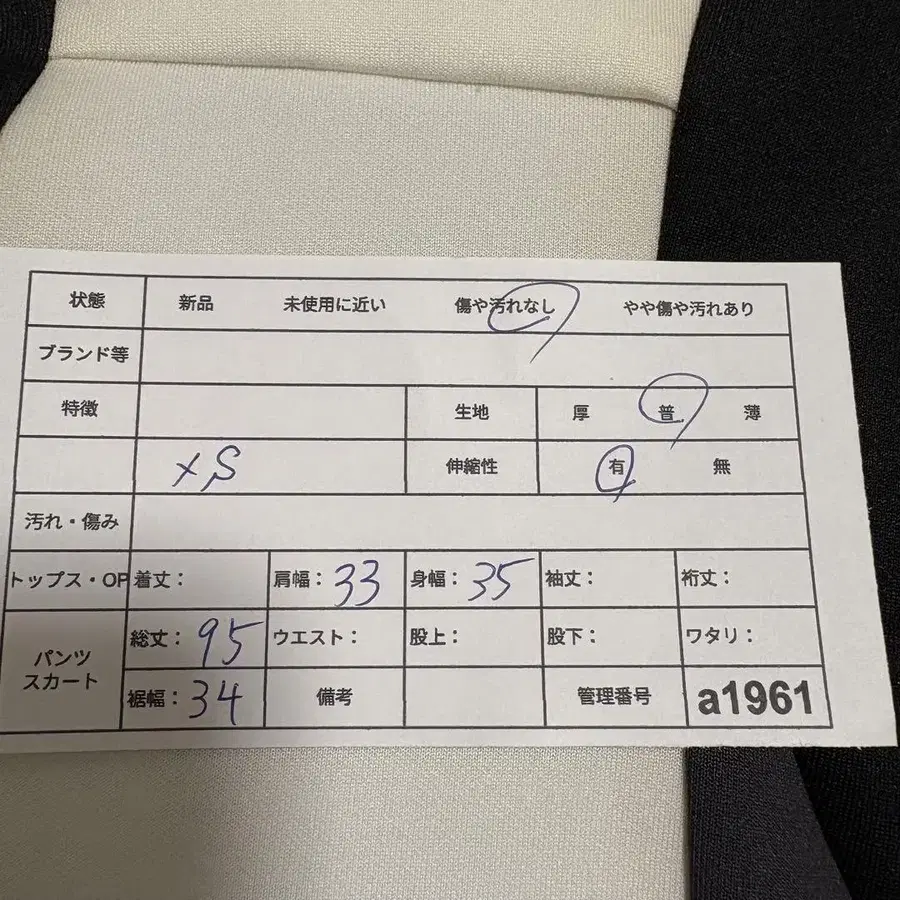 状態 新品 未使用に近い 傷や汚れなし やや傷や汚れあり
ブランド等
特徴 生地 厚 普 薄
XS 伸縮性 有 無
汚れ・傷み
トップス・OP 着丈： 肩幅：33 身幅：35 袖丈： 裄丈：
パンツ スカート
総丈：95 ウエスト： 股上： 股下： ワタリ：
裾幅：34 備考 管理番号 a1961